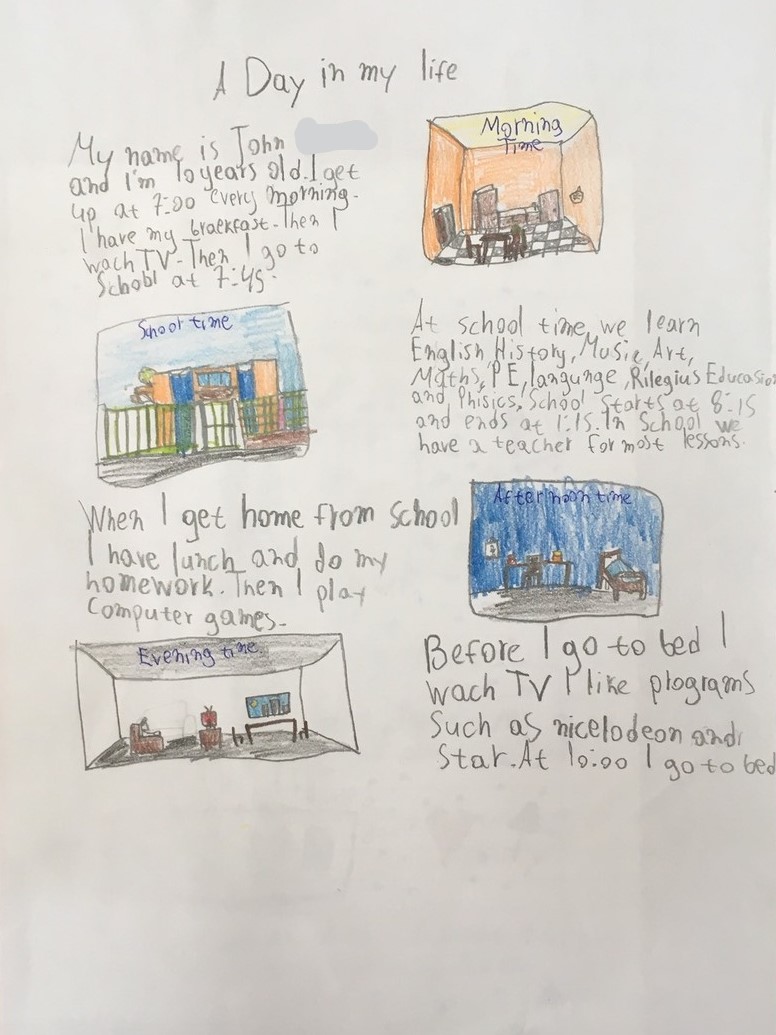 A Day in my life
My name is John
and I'm 10 years old. I get
up at 7:00 every morning.
I have my braekfast. Then I
wach TV. Then I go to
School at 7:45.
Morning
Time
School time
At school time, we learn
English History, Music, Art,
Maths, PE, langunge, Rilegius Educasion
and, Phisics, School starts at 8:15
and ends at 1:15. In School we
have a teacher for most lessons.
When I get home from school
I have lunch and do my
homework. Then I play
Computer games.
Afternoon time
Evening time
Before I go to bed I
wach TV I like programs
Such as nicelodeon and
Star. At 10:00 I go to bed